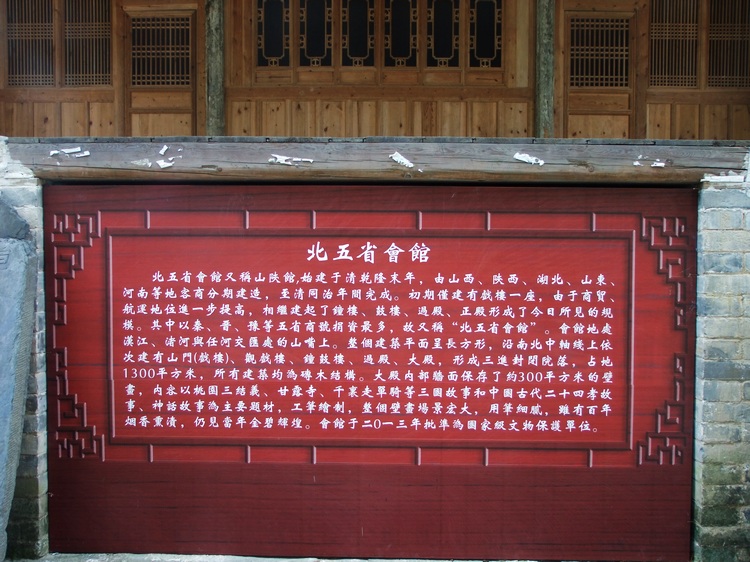 北五省會館
北五省會館又稱山陝館,始建于清乾隆末年，由山西、陝西、湖北、山東、
河南等地客商分期建造，至清同治年間完成。初期僅建有戲樓一座，由于商貿、
航運地位進一步提高，相繼建起了鐘樓、鼓樓、過殿、正殿形成了今日所見的規
模。其中以秦、晉、豫等五省商號捐資最多，故又稱“北五省會館”。會館地處
漢江、渚河與任河交匯處的山嘴上。整個建築平面呈長方形，沿南北中軸綫上依
次建有山門(戲樓)、觀戲樓、鐘鼓樓、過殿、大殿，形成三進封閉院落，占地
1300平方米，所有建築均為磚木結構。大殿内部牆面保存了約300平方米的壁
畫，内容以桃園三結義、甘露寺、千裏走單騎等三國故事和中國古代二十四孝故
事、神話故事為主要題材，工筆繪制，整個壁畫場景宏大，用筆細膩，雖有百年
烟香熏漬，仍見當年金碧輝煌。會館于二0一三年批準為國家級文物保護單位。